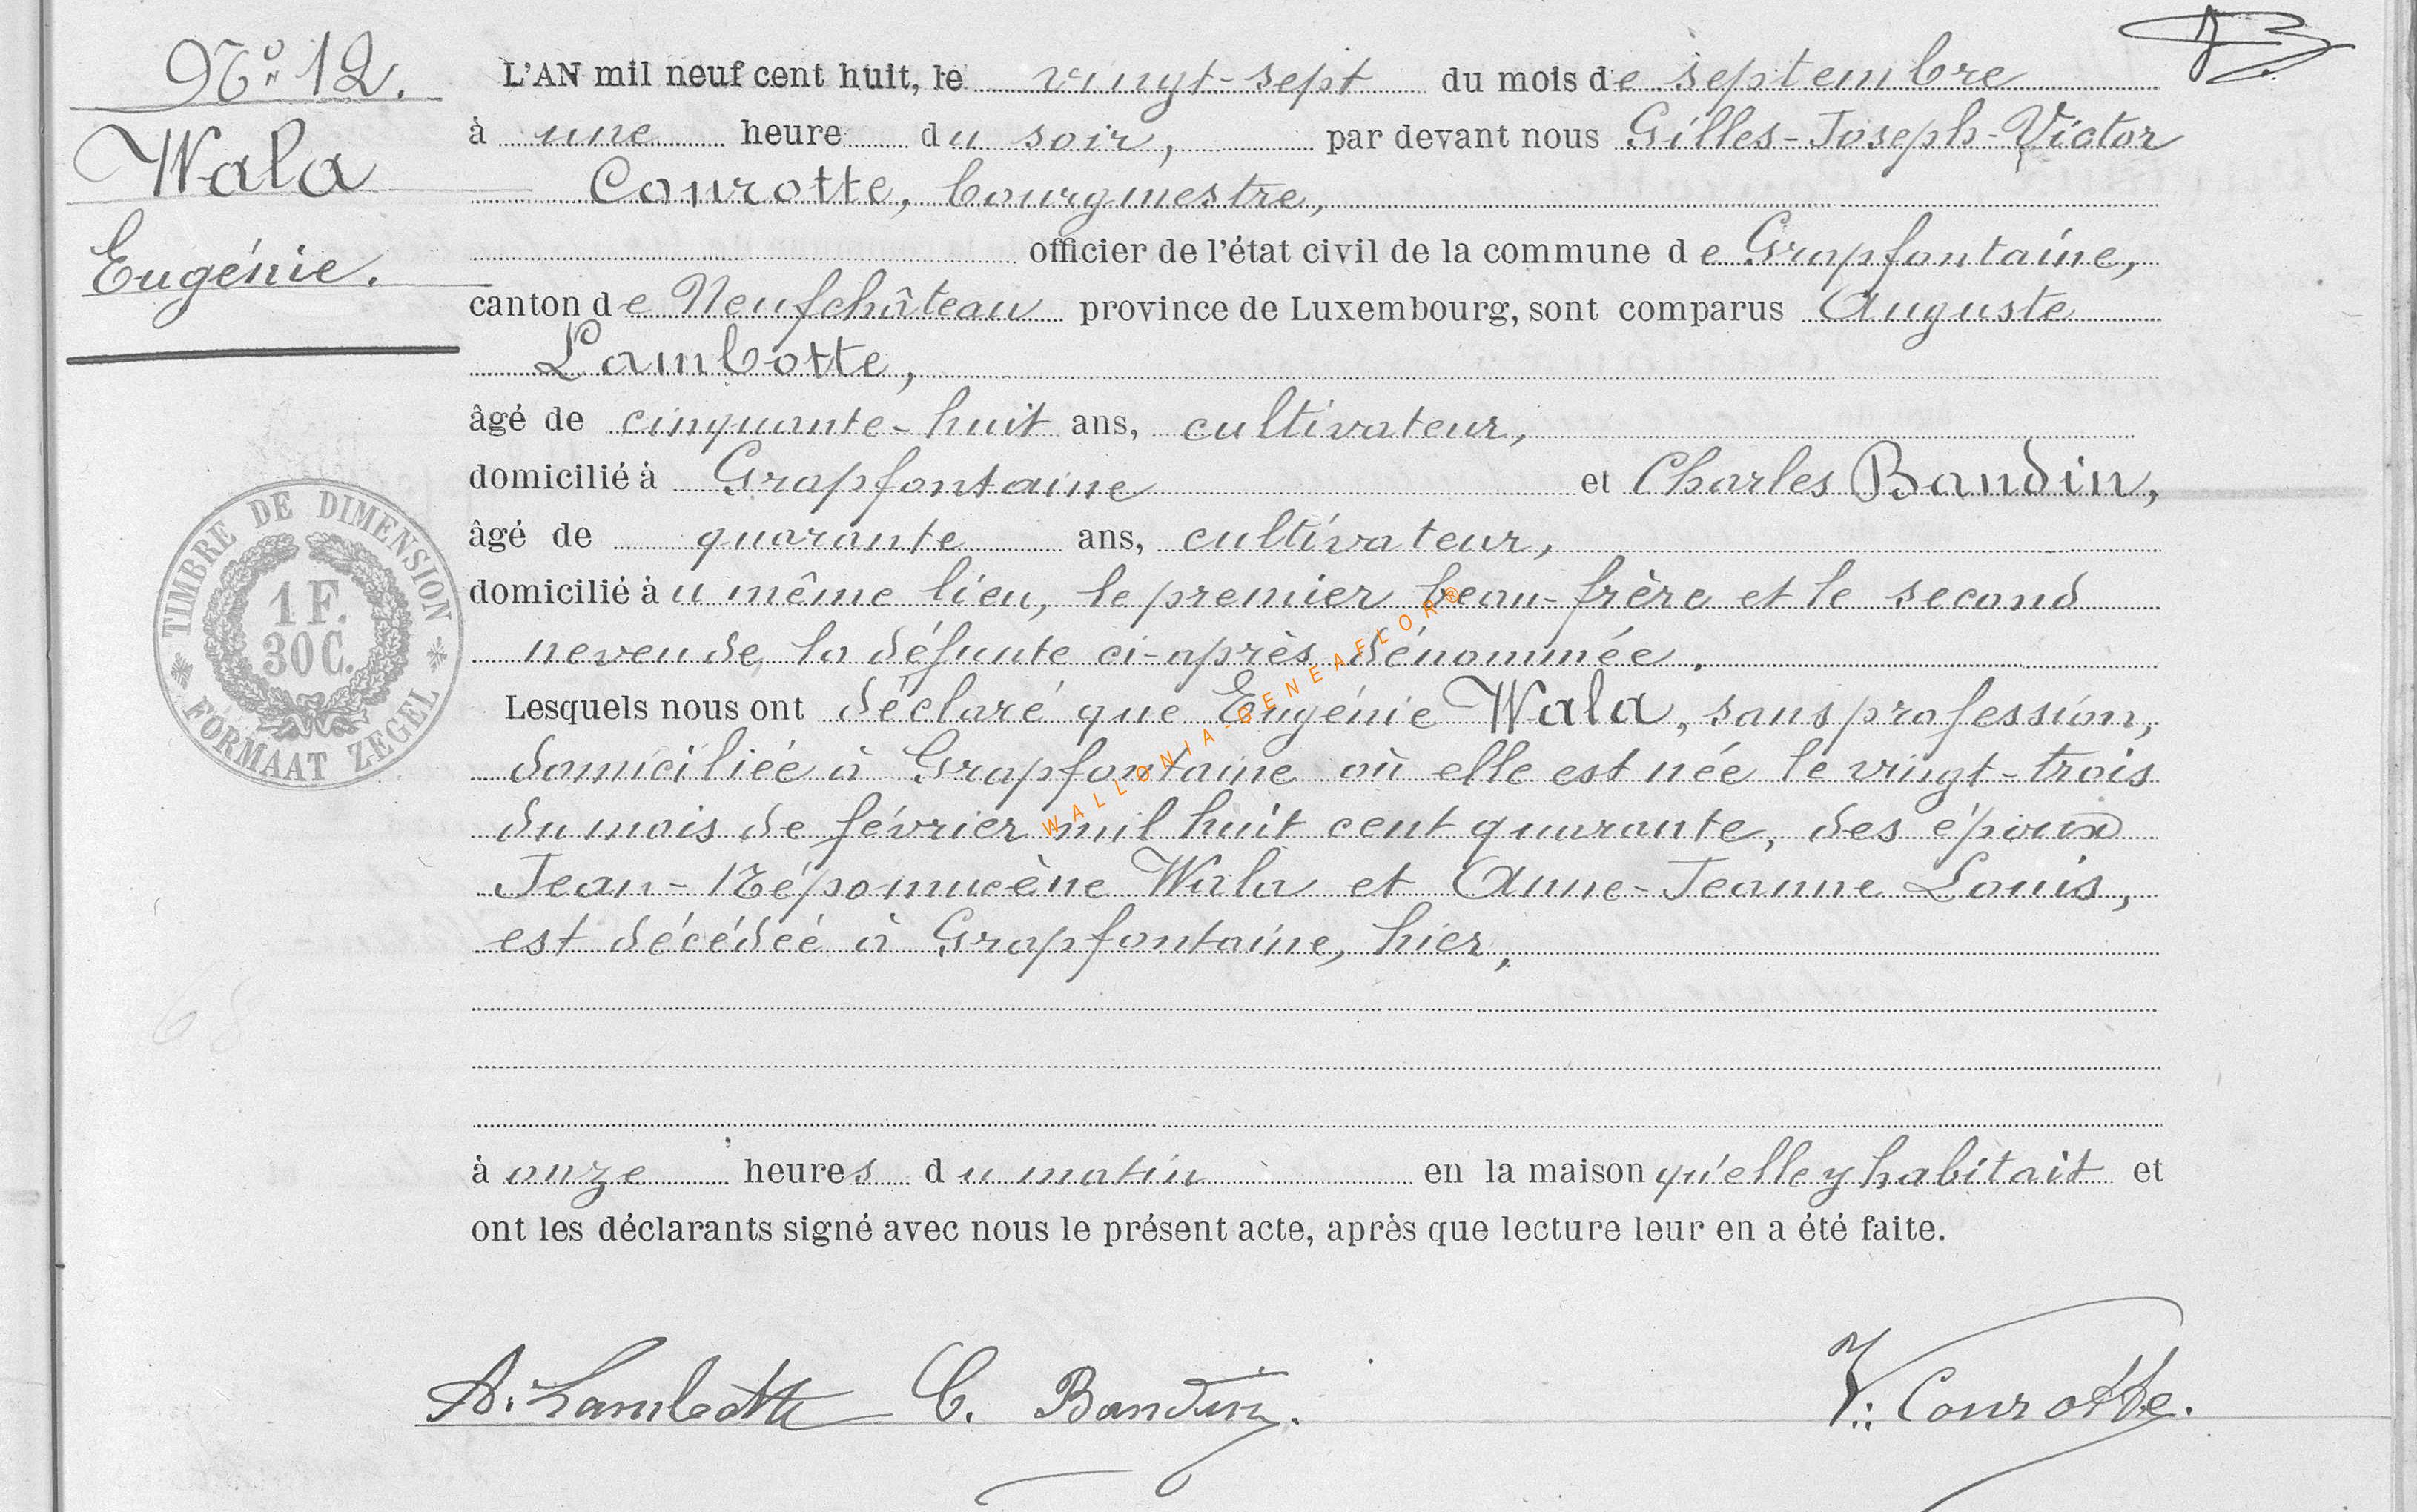 N° 12.
Wala
Eugénie.
L'AN mil neuf cent huit, le vingt-sept du mois de septembre
à une heure du soir, par devant nous Gilles-Joseph-Victor
Conrotte, bourgmestre,
officier de l'état civil de la commune de Grapfontaine,
canton de Neufchâteau province de Luxembourg, sont comparus Auguste
Lambotte,
âgé de cinquante-huit ans, cultivateur,
domicilié à Grapfontaine et Charles Baudin,
âgé de quarante ans, cultivateur,
domicilié au même lieu, le premier beau-frère et le second
neveu de la défunte ci-après dénommée.
Lesquels nous ont déclaré que Eugénie Wala, sans profession,
domiciliée à Grapfontaine où elle est née le vingt-trois
du mois de février mil huit cent quarante, des époux
Jean-Népomucène Wala et Anne-Jeanne Louis,
est décédée à Grapfontaine, hier,
à onze heures du matin en la maison qu'elle y habitait et
ont les déclarants signé avec nous le présent acte, après que lecture leur en a été faite.
A. Lambotte C. Baudin. V. Conrotte.
TIMBRE DE DIMENSION
1 F.
30 C.
FORMAAT ZEGEL
WALLONIA-GENEAFLOR®